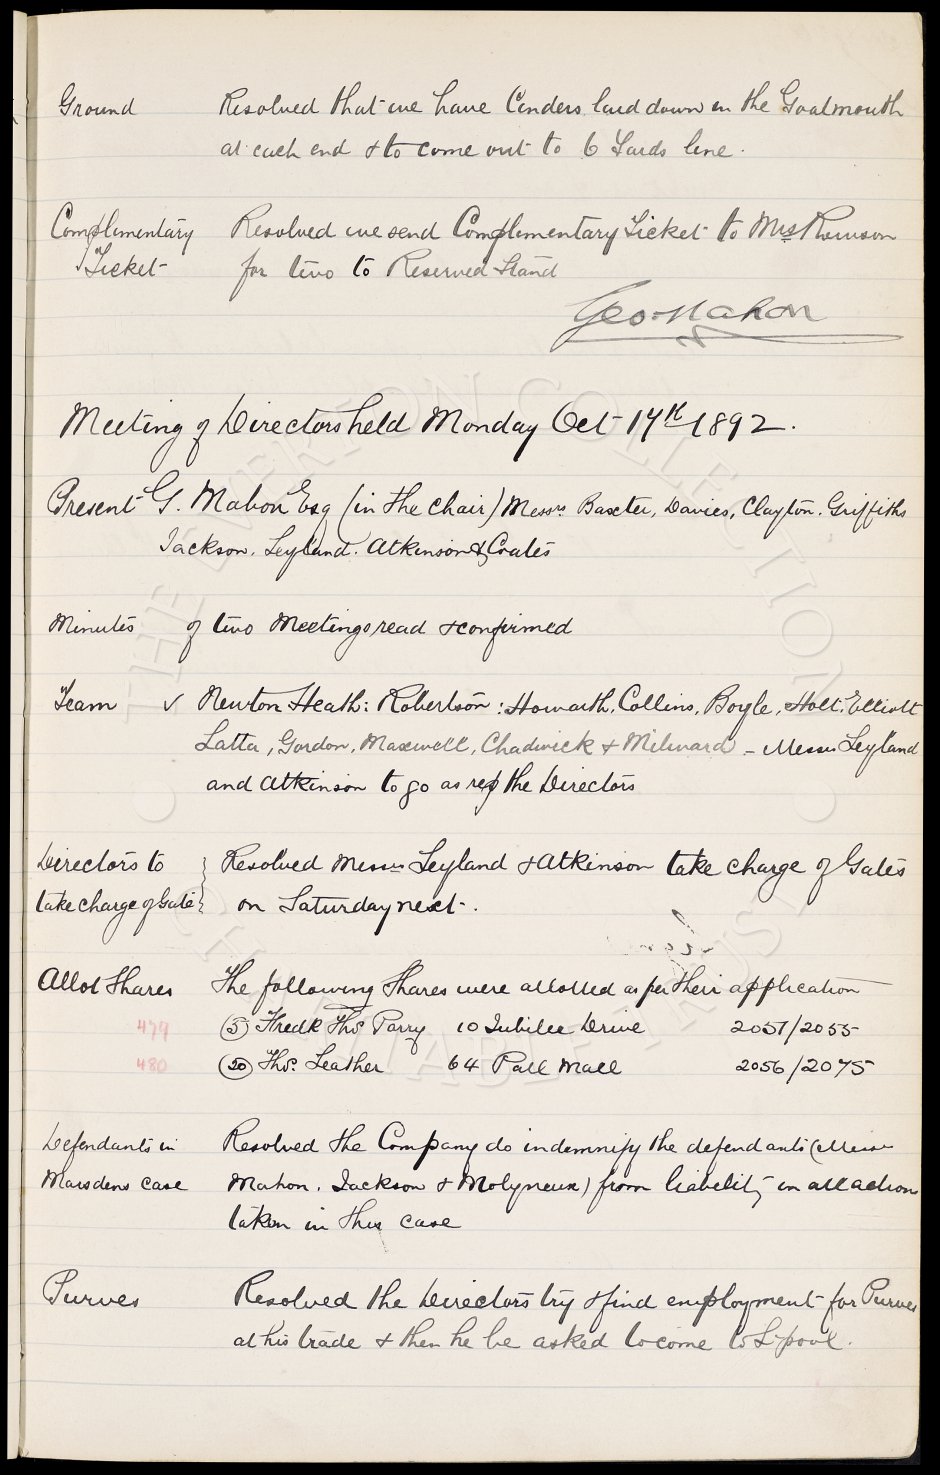 Ground Resolved that we have Cinders laid down in the Goalmouth
at each end & to come out to 6 Yards line.
Complimentary Resolved we send Complimentary Ticket to Mrs Rowson
Ticket for two to Reserved Stand
Geo Mahon
Meeting of Directors held Monday Oct 17th 1892.
Present G. Mahon Esq (in the chair) Messrs Baxter, Davies, Clayton. Griffiths
Jackson. Leyland. Atkinson & Coates
Minutes of two Meetings read & confirmed
Team √ Newton Heath: Robertson: Howarth, Collins, Boyle, Holt, Elliott
Latta, Gordon, Maxwell, Chadwick & Milward - Messrs Leyland
and Atkinson to go as rep the Directors
Directors to Resolved Messrs Leyland & Atkinson take charge of Gates
take charge of Gate on Saturday next.
Allot Shares The following Shares were allotted as per their application
479 (5) Fredk Thos Parry 10 Jubilee Drive 2051/2055
480 (20) Thos. Leather 64 Pall Mall 2056/2075
Defendants in Resolved the Company do indemnify the defendants (Messrs
Marsdens case Mahon. Jackson & Molyneux) from liability in all actions
taken in this case
Purves Resolved the Directors try & find employment for Purves
at his trade & then he be asked to come to L'pool.
THE EVERTON COLLECTION
CHARITABLE TRUST